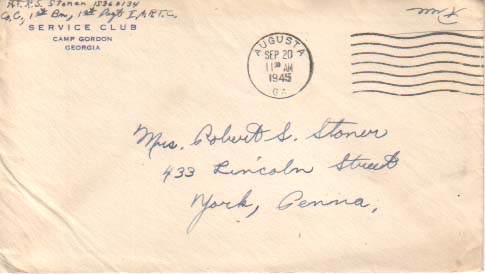 Pvt. R.S. Stoner
Co. C, 1st Bn, 1st Regt I.A.R.T.C.
SERVICE CLUB
CAMP GORDON
GEORGIA
AUGUSTA
SEP 20
11 30 AM
1945
GA
Mrs. Robert S. Stoner
433 Lincoln Street
York, Penna,